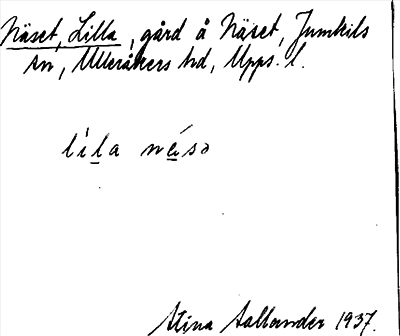 Näset, Lilla, gård å Näset, Jumkils
sn, Ulleråkers hd, Upps. l.
líla nẹ́sə
Stina Aallander 1937.